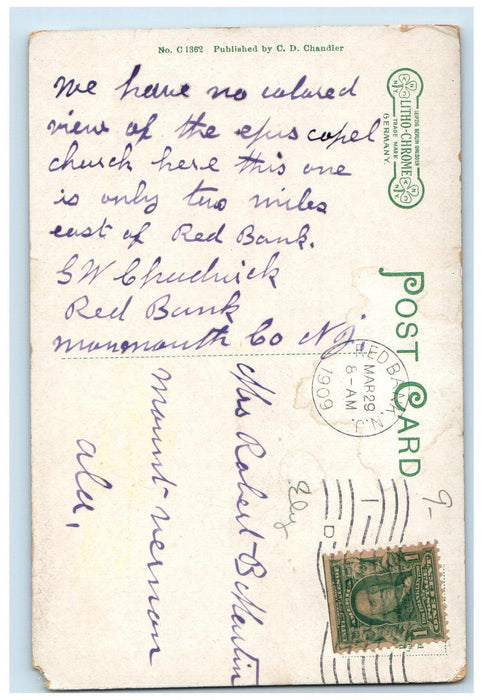 No. C 1362 Published by C. D. Chandler
We have no colored
view of the episcopel
church here this one
is only two miles
east of Red Bank.
GW Chadwick
Red Bank
monmouth Co N.J.
LITHO-CHROME
LEIPZIG BERLIN DRESDEN
TRADE MARK
GERMANY.
N.Y.
N.Y.
POST CARD
RED BANK N.J.
MAR 29
8-AM
1909
Mrs Robert B Martin
mount vernon
ala,
9-
1
D
1 1